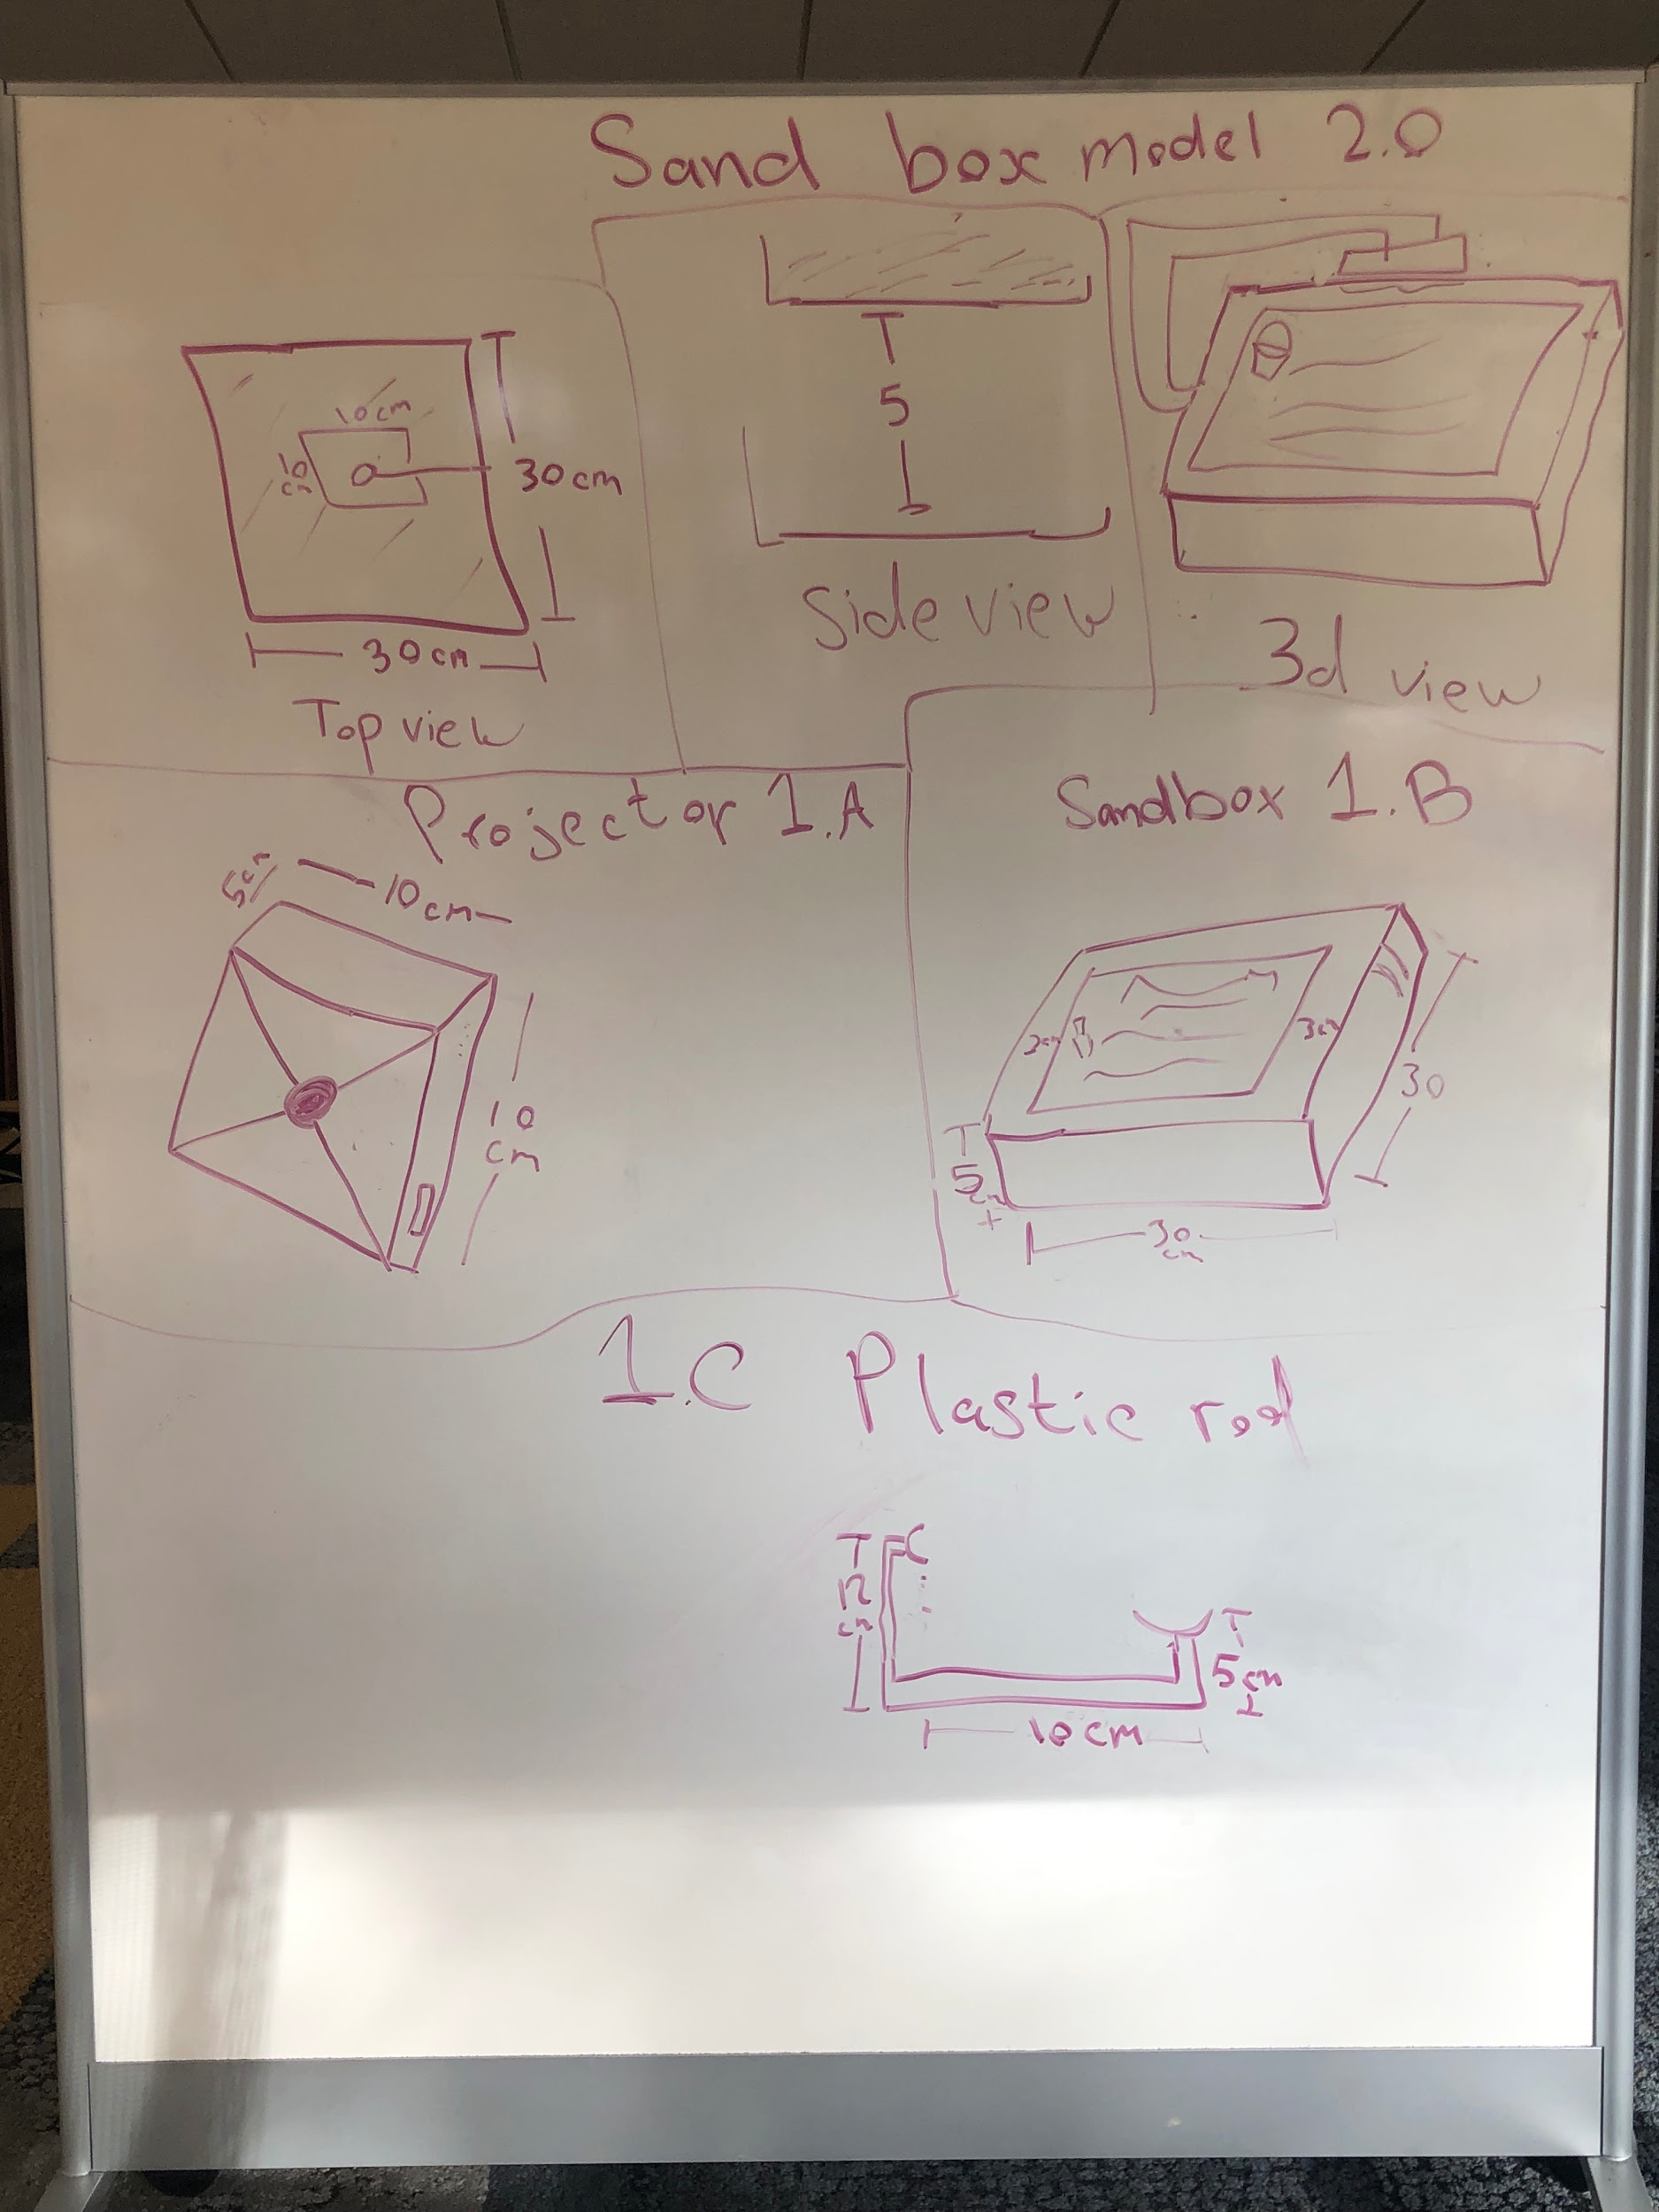 Sand box model 2.0
10cm
10
cm
30cm
30cm
Top view
5
Side view
3d view
Projector 1.A
5cm
10cm
10
cm
Sandbox 1.B
3cm
3cm
30
5cm
30
cm
1.C Plastic rod
12
cm
5cm
10cm